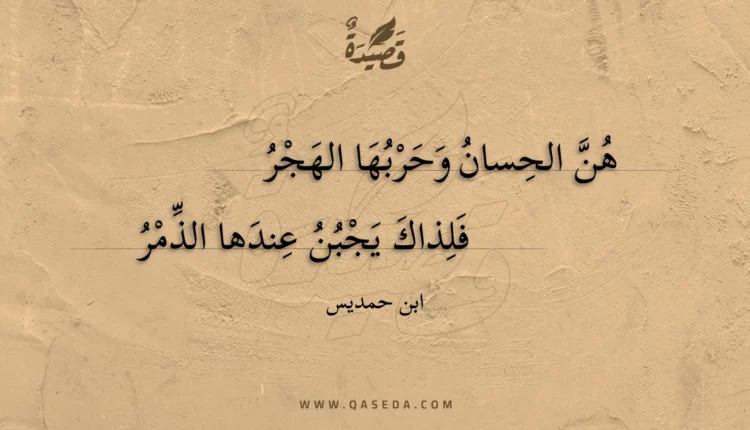 قَصِيْدَةٌ
هُنَّ الحِسانُ وَحَرْبُهَا الهَجْرُ
فَلِذاكَ يَجْبُنُ عِندَها الذِّمْرُ
ابن حمديس
WWW.QASEDA.COM